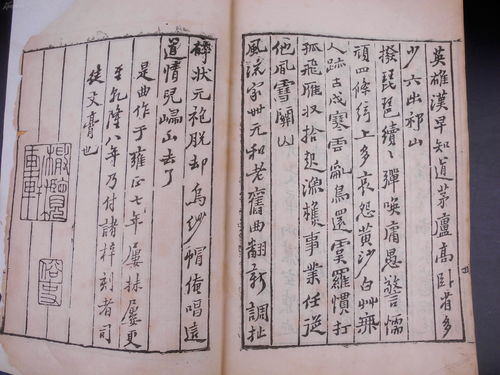 英雄漢早知道茅廬高卧省多
少六出祁山
撥琵琶續〻彈喚庸愚警懦
頑四條絃上多哀怨黃沙白艸無
人跡古戍寒雲亂鳥還虞羅慣打
孤飛雁收拾起漁樵事業任從
他風雪關山
風流家世元和老舊曲翻新調扯
碎狀元袍脫却烏紗帽俺唱這
道情兒歸山去了
是曲作于雍正七年屢抹屢更
至乾隆八年乃付諸梓刻者司
徒文膏也
俗吏